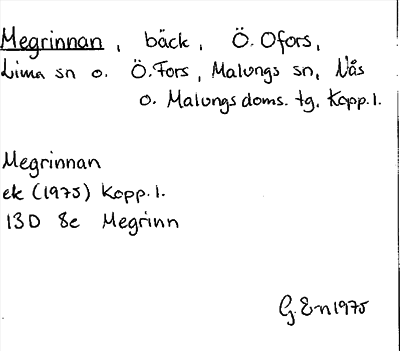 Megrinnan, bäck, Ö. Ofors,
Lima sn o. Ö. Fors, Malungs sn, Nås
o. Malungs doms. tg, Kopp. l.
Megrinnan
ek (1975) Kopp. l.
13D 8e Megrinn
G. En 1975